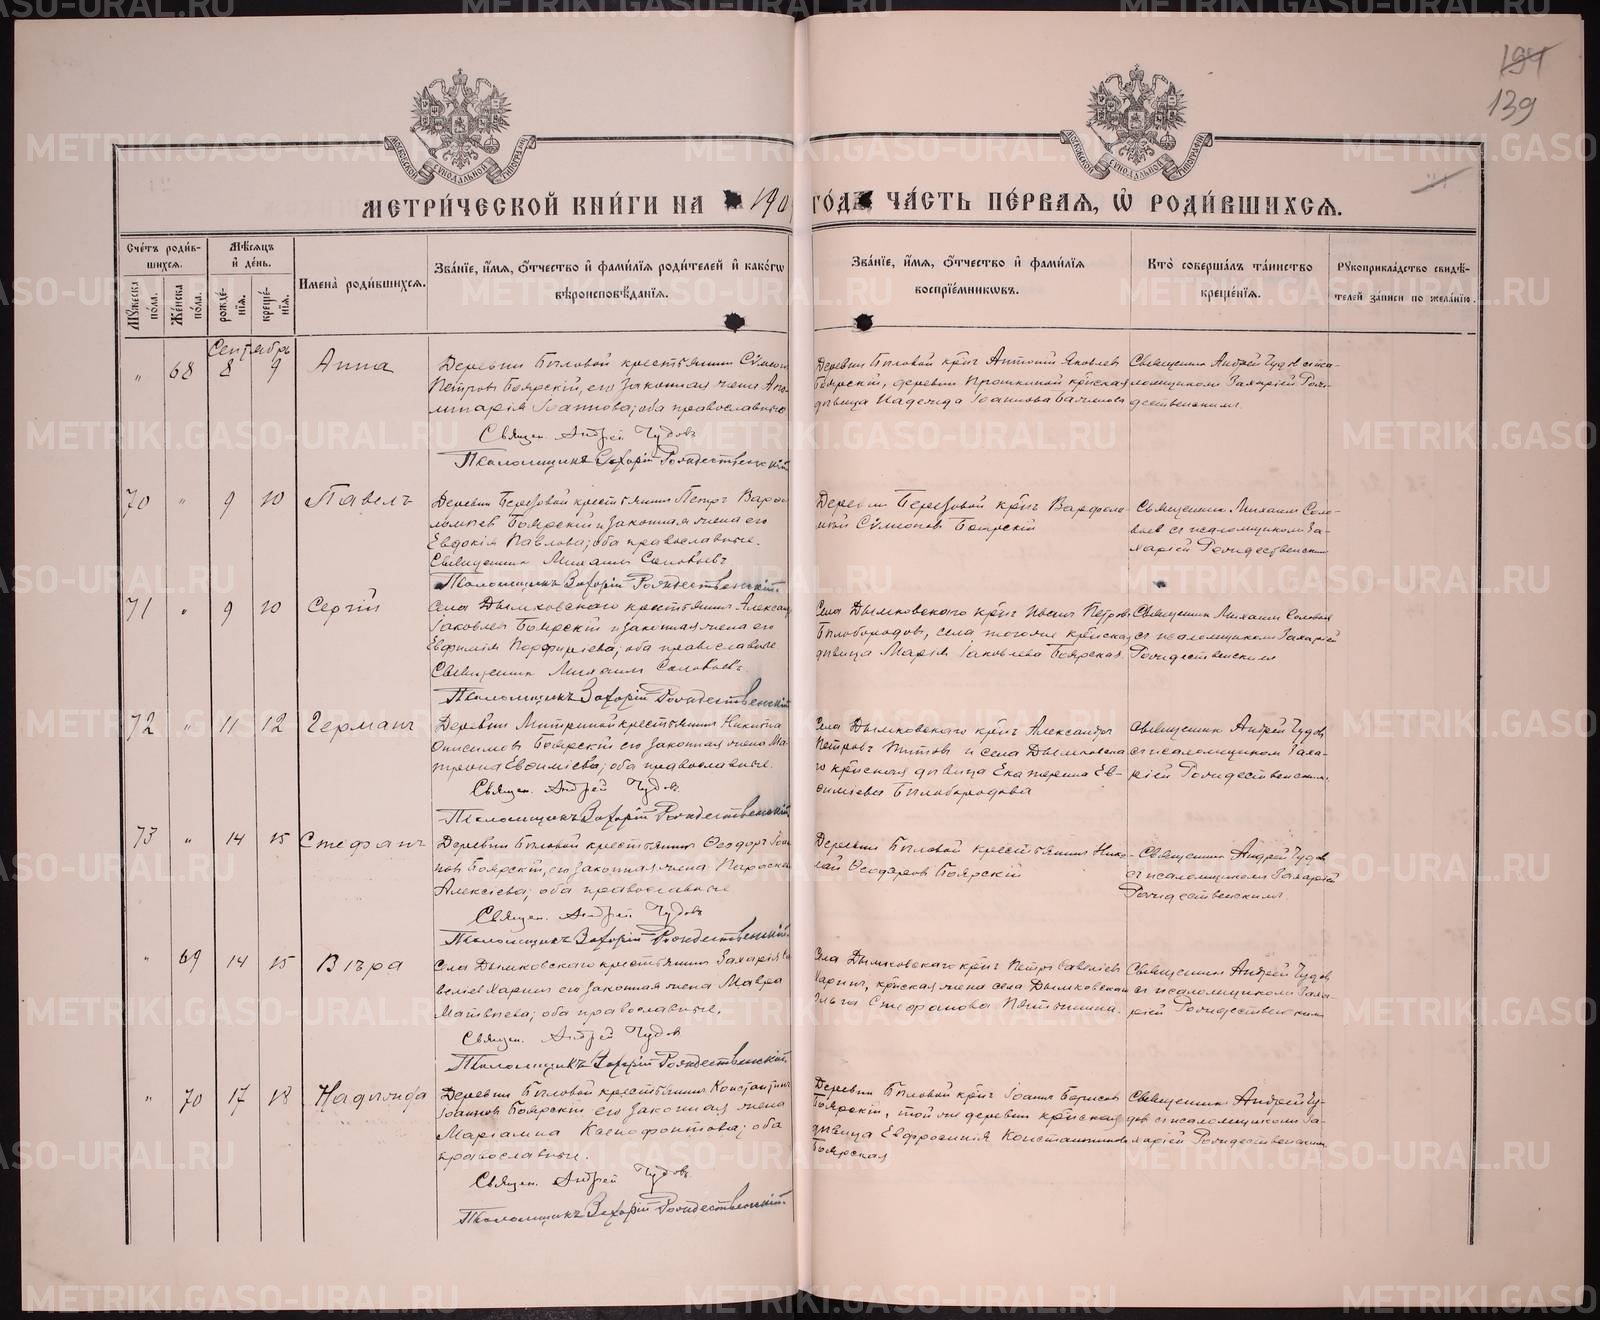 194
139
МОСКОВСКОЙ СѴНОДАЛЬНОЙ ТИПОГРАФІИ
МОСКОВСКОЙ СѴНОДАЛЬНОЙ ТИПОГРАФІИ
МЕТРИ́ЧЕСКОЙ КНИ́ГИ НА 190 ГОДЪ ЧА́СТЬ ПЕ́РВАЯ, Ѽ РОДИ́ВШИХСЯ.
Сче́тъ роди́в-
шихся.
Мѣ́сяцъ
и҆ де́нь.
Имена̀ роди́вшихся.
Зва́нїе, и҆́мя, ѻ҆́тчество и҆ фами́лїя роди́телей и҆ како́гѡ
вѣроисповѣ́данїя.
Зва́нїе, и҆́мя, ѻ҆́тчество и҆ фами́лїя
воспрїе́мникѡвъ.
Кто̀ соверша́лъ та́инство
креще́нїя.
Рꙋкоприкла́дство свидѣ́-
телей за́писи по жела́нїю.
Мꙋ́жеска
по́ла.
Же́нска
по́ла.
рожде́-
нїя.
креще́-
нїя.
Сентябрь
" 68 8 9 Анна
Деревни Быловой крестьянинъ Сѵмеонъ
Петровъ Боярскій, его законная жена Апо-
линарія Іоаннова; оба православные
Священ. Андрей Чудовъ
Псаломщикъ Захарій Рождественскій
Деревни Быловой кр-нъ Антоній Яковлев
Боярскій, деревни крнская
дѣвица Надежда Іоаннова
Священникъ Андрей Чудов с пса-
ломщикомъ Захаріей Рож-
дественскимъ.
70 " 9 10 Павелъ
Деревни Березовой крестьянинъ Петръ Варфо-
ломеевъ Боярскій и законная жена его
Евдокія Павлова; оба православные.
Священникъ Михаилъ Соловьевъ
Псаломщикъ Захарій Рождественскій
Деревни Березовой крнъ Варфоло-
мей Сѵмеонов Боярскій
Священникъ Михаилъ Соло-
вьев съ псаломщикомъ За-
харіей Рождественским
71 " 9 10 Сергій
Села Дымковскаго крестьянинъ Александ
Іаковлев Боярскій и законная жена его
Евфимія Порфиріева; оба православные
Священникъ Михаилъ Соловьевъ
Псаломщикъ Захарій Рождественскій
Села Дымковскаго крнъ Петров
Бѣлобородов, села того же крнская
дѣвица Марія Іаковлева Боярская
Священникъ Михаилъ Соловьев
съ псаломщикомъ Захаріей
Рождественскимъ
72 " 11 12 Германъ
Деревни Митриной крестьянинъ Никита
Онисимов Боярскій его законная жена Ма-
трона Евѳиміева; оба православные.
Священ. Андрей Чудов
Псаломщикъ Захарій Рождественскій
Села Дымковскаго крнъ Александръ
Петровъ Титов и села Дымковска-
го крнская дѣвица Екатерина Ев-
ѳиміева Бѣлобородова
Священникъ Андрей Чудов
съ псаломщиком Заха-
ріей Рождественским.
73 " 14 15 Стефанъ
Деревни Быловой крестьянинъ Ѳеодоръ Іоан-
нов Боярскій, его законная жена Параскева
Алексіева; оба православные
Священ. Андрей Чудовъ
Псаломщикъ Захарій Рождественскій
Деревни Быловой крестьянинъ Нико-
лай Ѳеодоров Боярскій
Священникъ Андрей Чудов
съ псаломщикомъ Захаріей
Рождественскимъ
" 69 14 15 Вѣра
Села Дымковскаго крестьянинъ Захарія Са-
веліев Харинъ его законная жена Мавра
Матвѣева; оба православные.
Священ. Андрей Чудов
Псаломщикъ Захарій Рождественскій
Села Дымковскаго крнъ Петръ Савеліев
Харинъ, крнская жена села Дымковскаго
Ольга Стефанова
Священникъ Андрей Чудов
съ псаломщиком Заха-
ріей Рождественским
" 70 17 18 Надежда
Деревни Быловой крестьянинъ Константинъ
Іоаннов Боярскій его законная жена
Маріамна Ксенофонтова; оба
православные.
Священ. Андрей Чудовъ
Псаломщикъ Захарій Рождественскій
Деревни Быловой крнъ Іоаннъ Борисов
Боярскій, той же деревни крнская
дѣвица Евфросинія Константинова
Боярская
Священникъ Андрей Чу-
дов съ псаломщикомъ За-
харіей Рождественским
METRIKI.GASO-URAL.RU